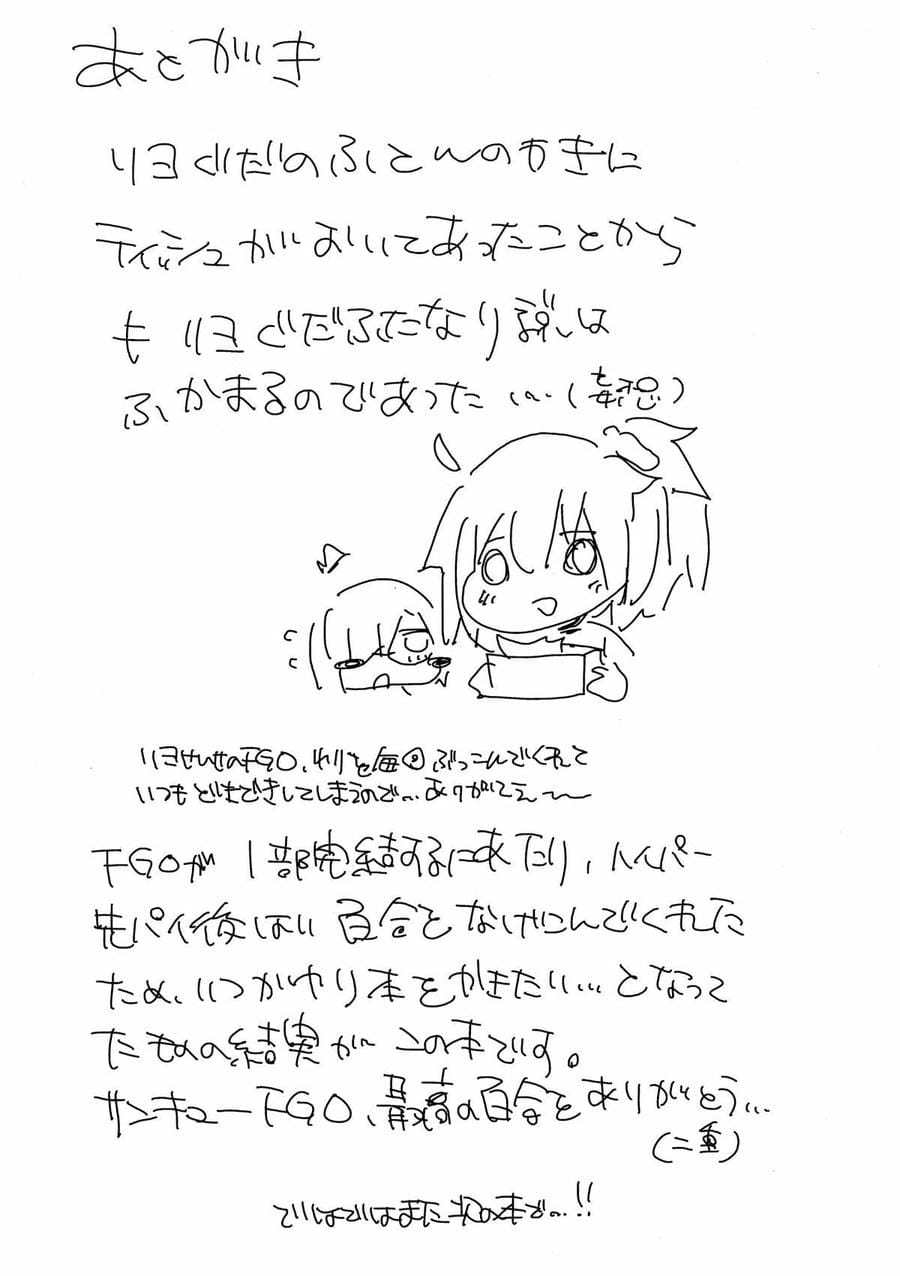 あとがき
リヨぐだのふとんのわきに
ティッシュがおいてあったことから
も リヨぐだふたなり説は
ふかまるのであった…(妄想)
リヨせんせのFGO、わりと毎回ぶっこんでくれて
いつもどぎまぎしてしまうので…ありがてえ〜
FGOが1部完結するにあたり、ハイパー
先パイ後はい百合をなげこんでくれた
ため、いつかゆり本をかきたい…となって
たものの結果がこの本です。
サンキューFGO、最高の百合をありがとう…
(二重)
ではではまた次の本で…!!